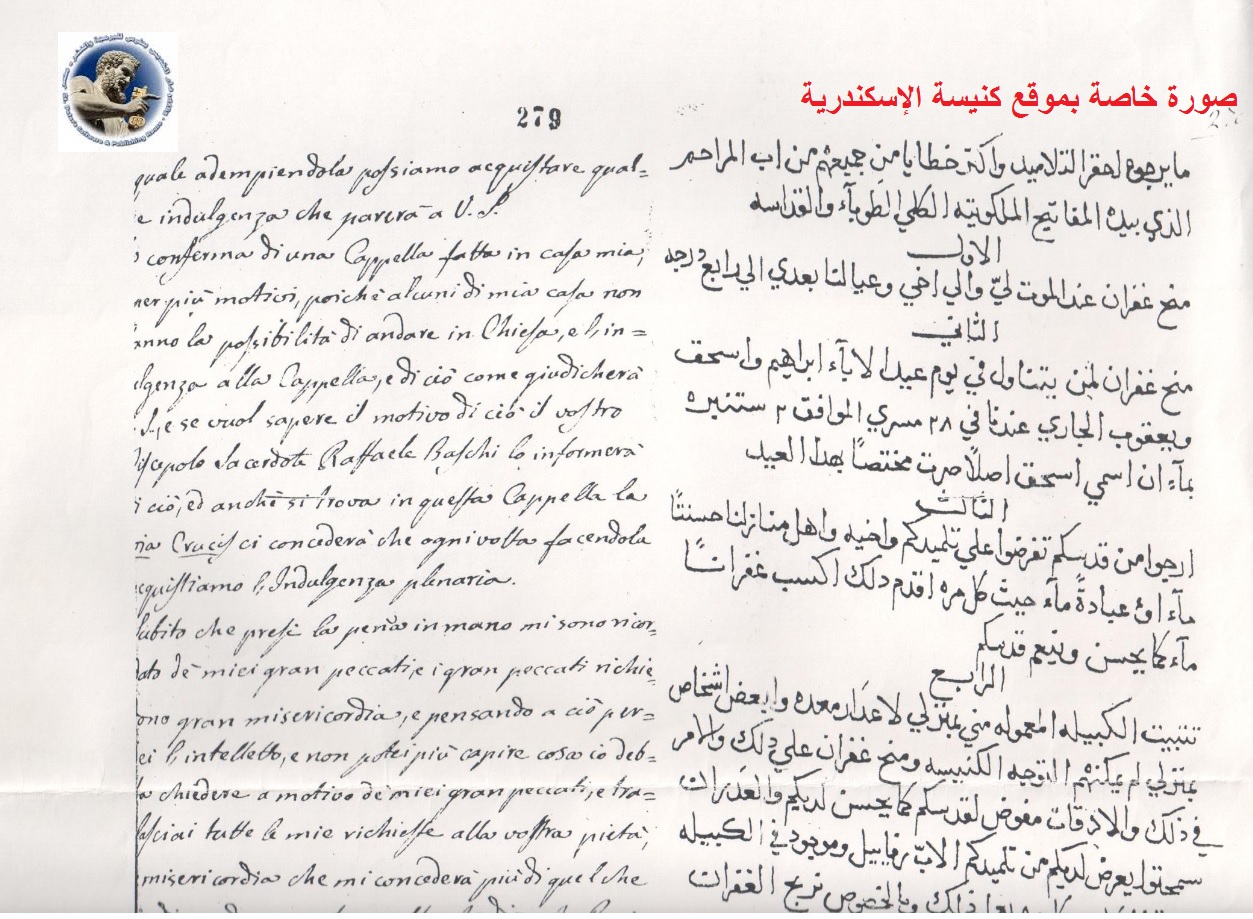 صورة خاصة بموقع كنيسة الإسكندرية
279
quale adempiendola possiamo acquistare qual=
e indulgenza che parerà a V. S.
conferma di una Cappella fatta in casa mia,
per più motivi, poichè alcuni di mia casa non
anno la possibilità di andare in Chiesa, e l'in=
lgenza alla Cappella, e di ciò come giudicherà
S., e se vuol sapere il motivo di ciò il vostro
iscepolo Sacerdote Raffaele lo informerà
i ciò, ed anche si trova in questa Cappella la
ia Crucis ci concederà che ogni volta facendola
cquistiamo l'Indulgenza plenaria.
ubito che presi la penna in mano mi sono ricor=
dato de' miei gran peccati, e i gran peccati richie=
ono gran misericordia, e pensando a ciò per=
ei l'intelletto, e non potei più capire cosa io deb=
a chiedere a motivo de' miei gran peccati, e tra=
lasciai tutte le mie richieste alla vostra pietà,
misericordia che mi concederà più di quel che
ما يرجوه احقر التلاميد واكتر خطايا من جميعهم من اب المراحم
الذي بيده المفاتيح الملكوتيه الكلي الطوباء والقداسه
الاول
منح غفران عند الموت ليّ والي اخي وعيالنا بعدي الي رابع درجه
التاني
منح غفران لمن يتناول في يوم عيد الاباء ابراهيم واسحق
ويعقوب الجاري عندنا في ٢٨ مسري الموافق ٢ ستنبره
بماء ان اسمي اسحق اصلاً صرت مختصاً بهدا العيد
التالت
ارجوا من قدسكم تفرضوا علي تلميدكم واخيه واهل منازلنا حسنتاً
ماء اوئ عبادةً ماء حيث كل مره اقدم دلك اكسب غفراناً
ماء كما يحسن وينعم قدسكم
الرابع
تتبيت الكبيله المعموله مني بمنزلي لاعدار معده وابعض اشخاص
بمنزلي لم يمكنهم التوجه الكنيسه ومنح غفران علي دلك والامر
في ذلك والاذقات مفوض لقدسكم كما يحسن لديكم والعدرات
سمحتوا يعرض لديكم من تلميدكم الاب رفاييل وموجود في الكبيله
دلك وبالخصوص نربح الغفران